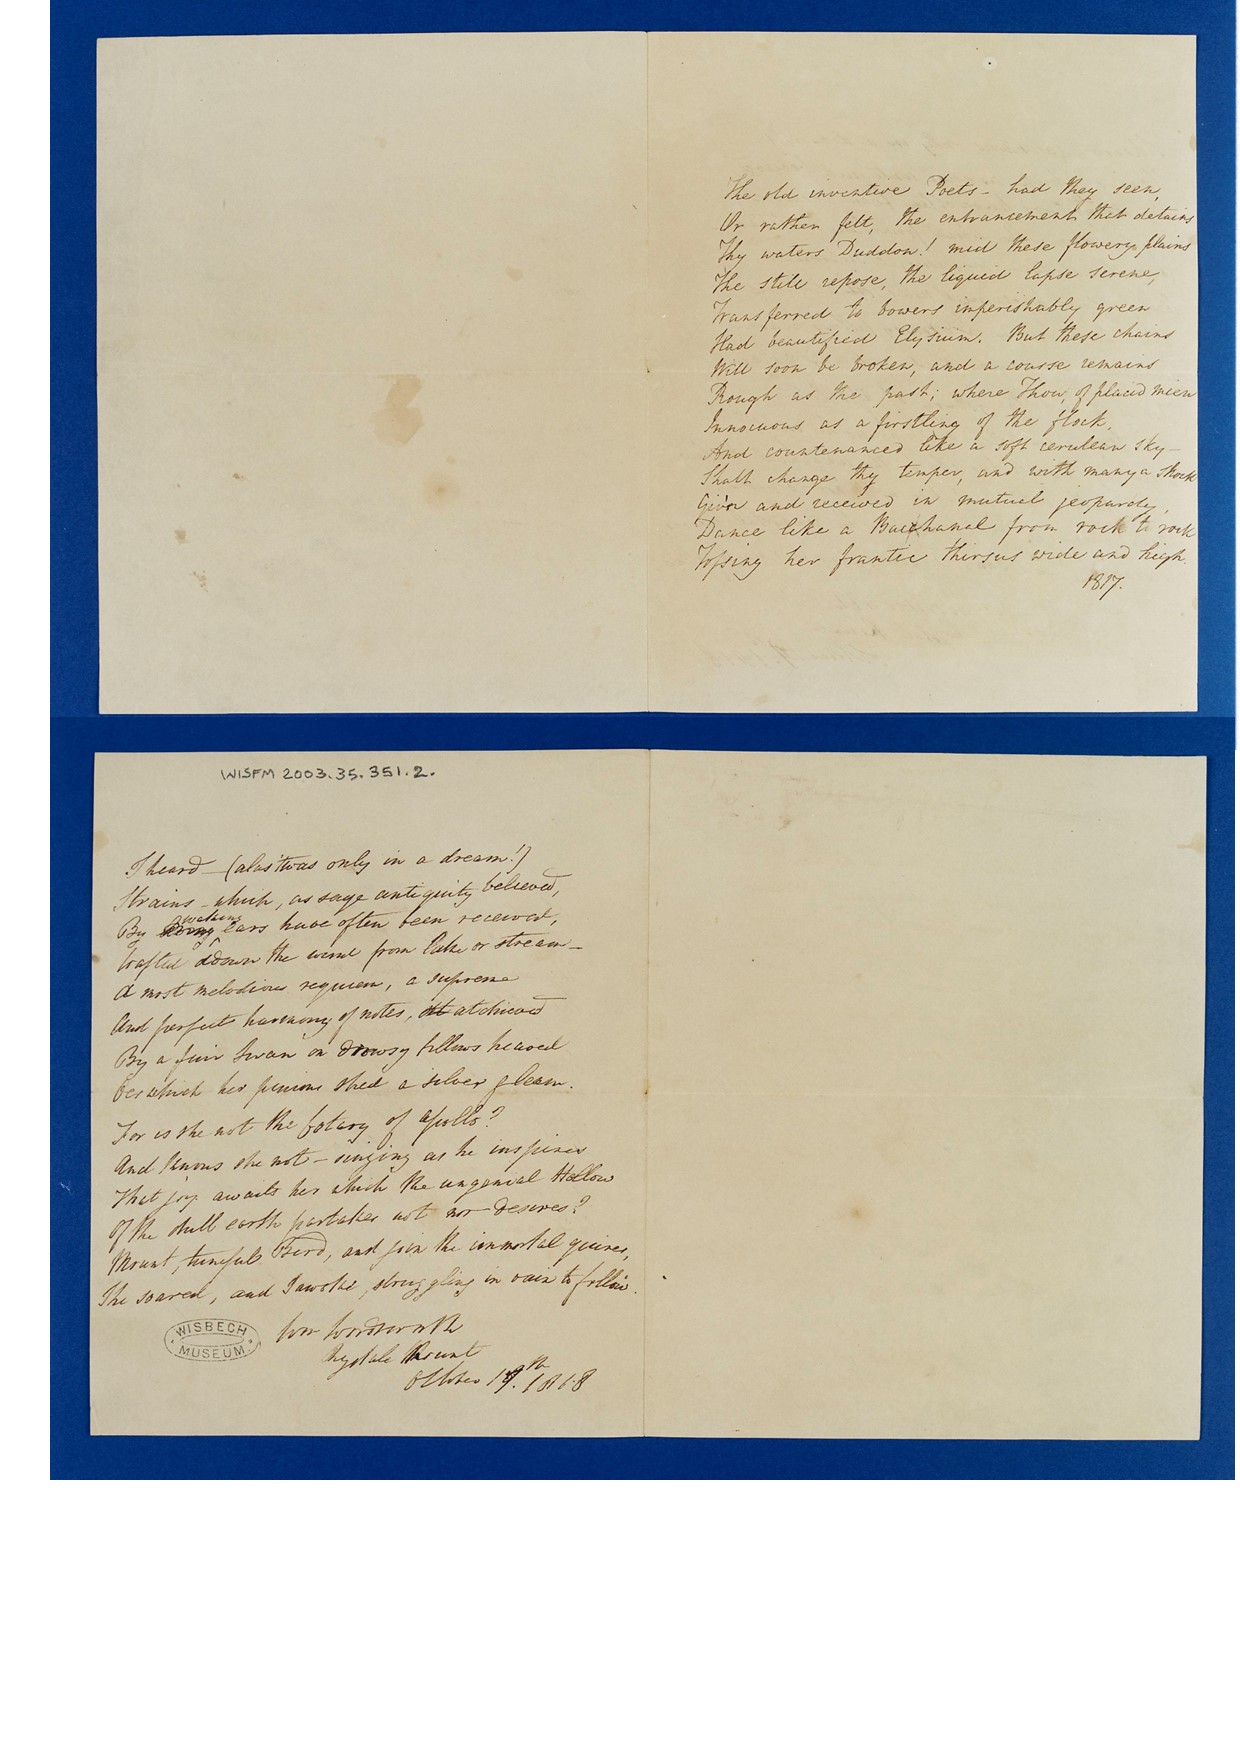 The old inventive Poets - had they seen,
Or rather felt, the entrancement that detains
Thy waters Duddon! mid these flowery plains
The still repose, the liquid lapse serene,
Transferred to bowers imperishably green
Had beautified Elysium. But these chains
Will soon be broken, and a course remains
Rough as the past; where Thou, of placid mien
Innocuous as a firstling of the flock,
And countenanced like a soft cerulean sky -
Shalt change thy temper, and with many a shock
Giv'n and received in mutual jeopardy,
Dance like a Bacchanal from rock to rock
Tossing her frantic thirsus wide and high.
1817.
WISFM 2003.35.351.2.
I heard - (alas 'twas only in a dream!)
Strains - which, as sage antiquity believed,
waking
By ears have often been received,
Wafted adown the wind from lake or stream -
A most melodious requiem, a supreme
And perfect harmony of notes, atchieved
By a fair Swan on drowsy billows heaved
O'er which her pinions shed a silver gleam.
For is she not the Votary of Apollo?
And knows she not - singing as he inspires
That joy awaits her which the ungenial Hollow
Of the dull earth partakes not nor desires?
Mount, tuneful Bird, and join the immortal quires,
She soared, and I awoke, struggling in vain to follow.
Wm Wordsworth
Rydale Mount
October 19th. 1818
WISBECH
MUSEUM.